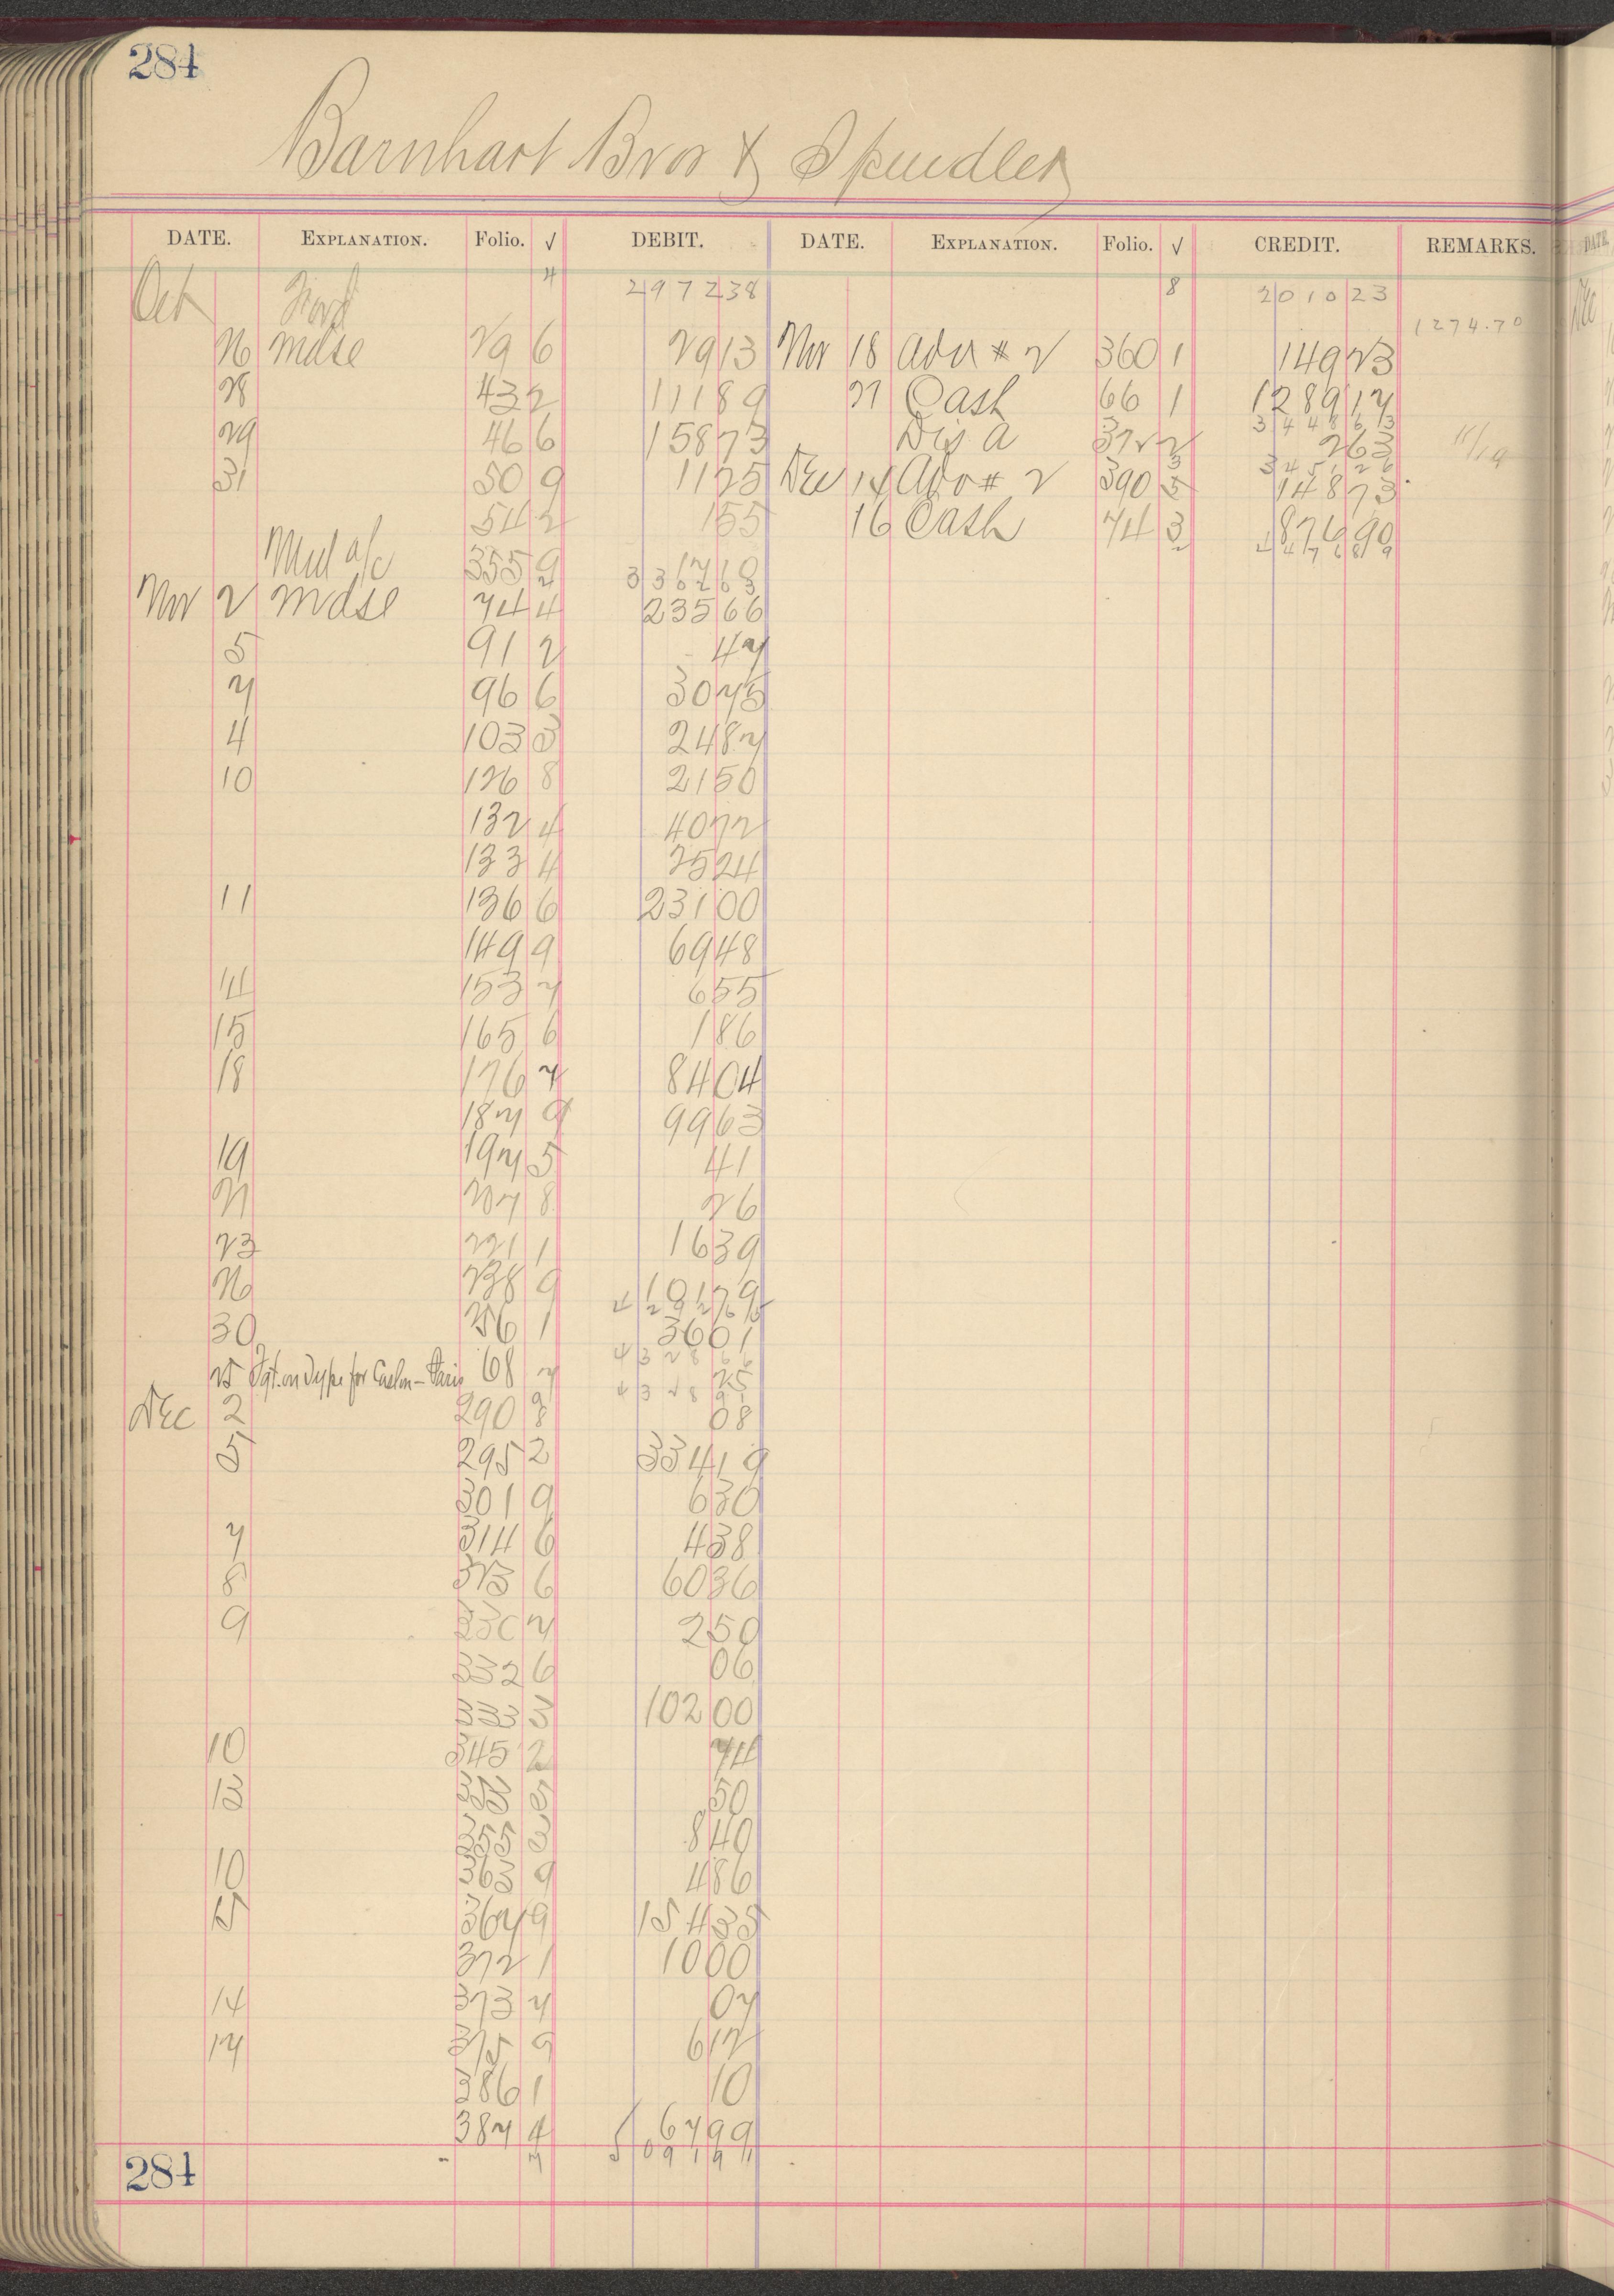 284
Barnhart Bros & Spindler
DATE. EXPLANATION. Folio. √ DEBIT. DATE. EXPLANATION. Folio. √ CREDIT. REMARKS.
Oct Ford 4 2972 38 8 2010 23
1274.70
26 Mdse 29 6 29 13 Nov 18 Advr # 2 360 1 149 23
28 43 2 111 89 21 Cash 66 1 1289 17
3448 63
29 46 6 158 73 Dis A 372 2 2 63 11/19
3451 26
31 50 9 11 25 Dec 14 Advr # 2 390 5 148 73
54 2 1 55 16 Cash 74 3 876 90
4476 89
Mul a/c 355 9
3367 68
Nov 2 Mdse 74 4 235 66
5 91 2 47
7 96 6 30 75
4 103 3 24 87
10 126 8 21 50
132 4 40 72
133 4 25 24
11 136 6 231 00
149 9 69 48
14 153 7 6 55
15 165 6 1 86
18 176 7 84 04
187 9 99 63
19 197 5 41
21 207 8 26
23 221 1 16 39
26 238 9 101 79
30 256 1 36 01
25 Fgt. on Type for 68 7 25
Dec 2 290 8 08
5 295 2 334 19
301 9 6 30
7 314 6 4 38
8 323 6 60 36
9 330 7 2 50
332 6 06
333 3 102 00
10 345 2 74
13 50
355 3 8 40
10 363 9 4 86
15 367 9 154 35
372 1 10 00
14 373 7 07
17 375 9 6 12
386 1 10
387 4 67 99
7 5091 91
284